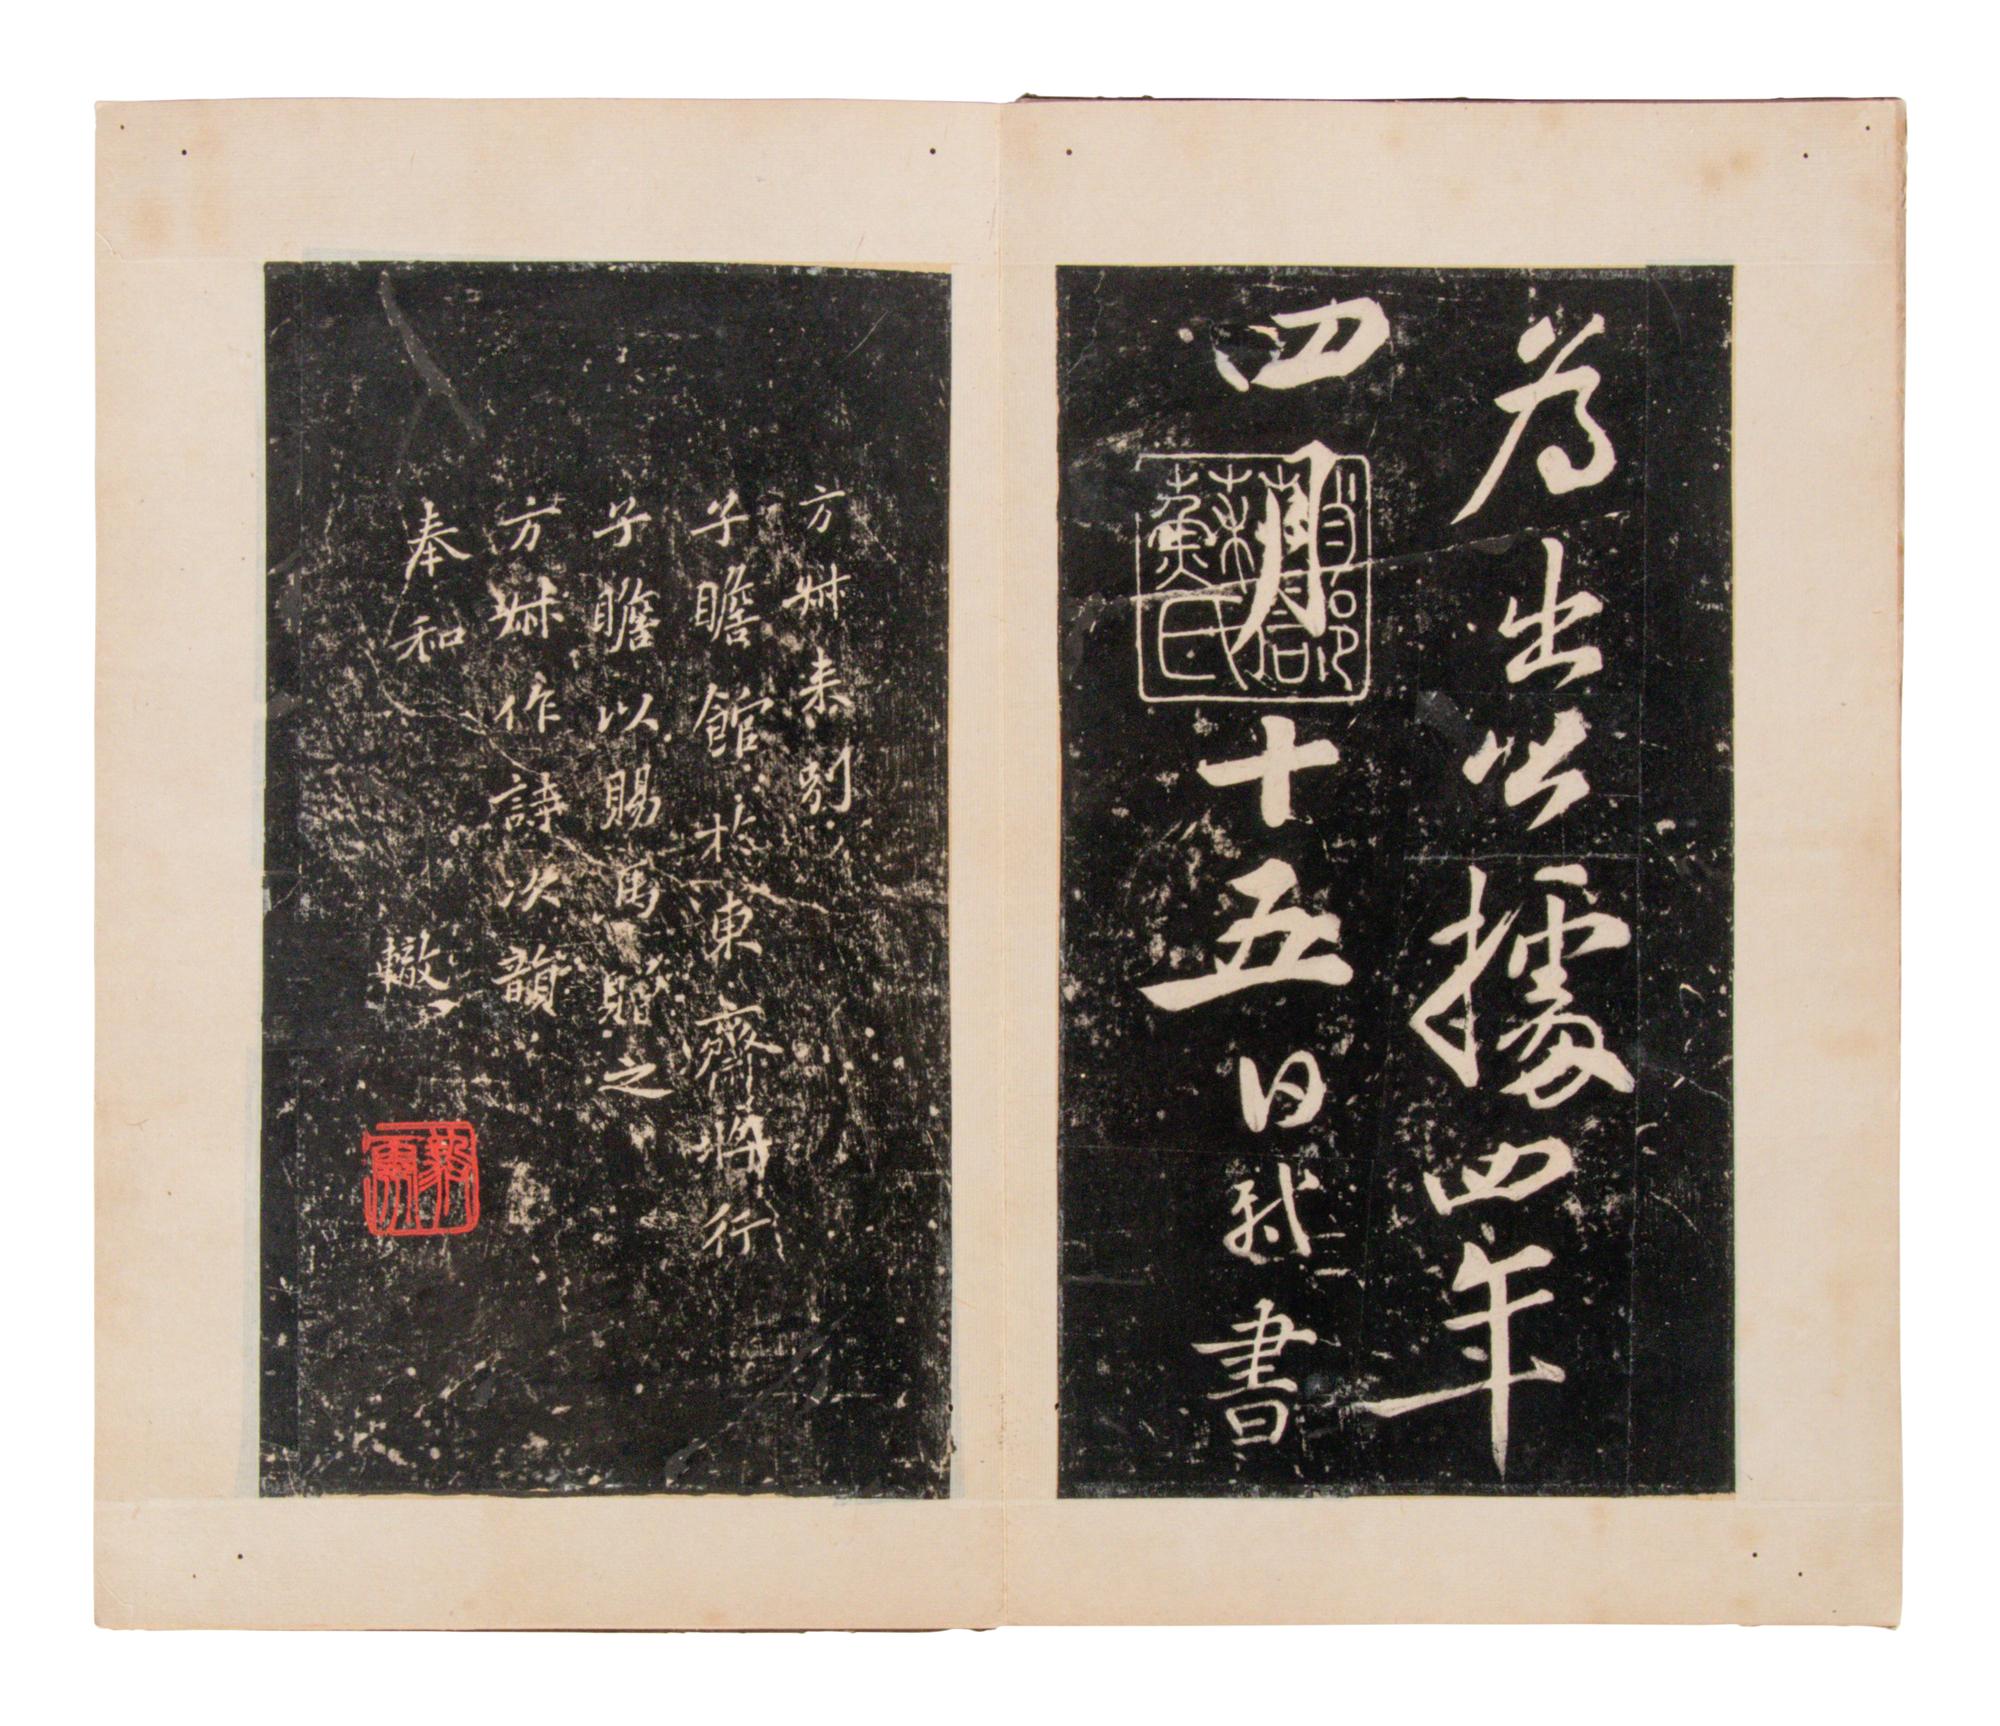 為出公據四年
四月十五日軾書
眉陽
蘇軾
方叔来別
子瞻館於東齋將行
子瞻以賜馬贈之
方叔作詩次韻
奉和
轍